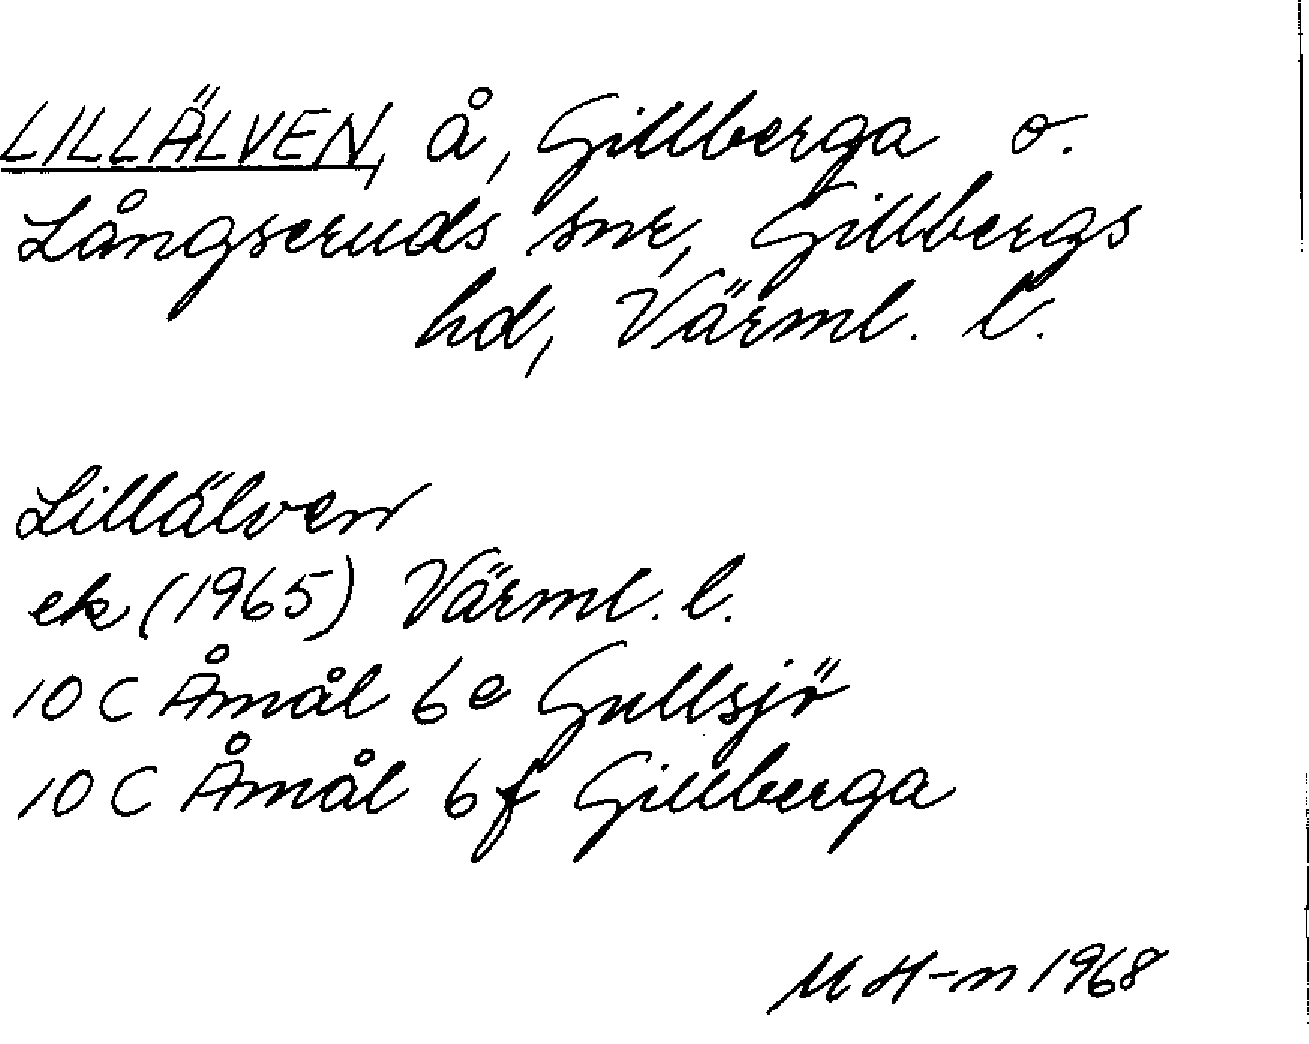 LILLÄLVEN, å, Gillberga o.
Långseruds snr, Gillbergs
hd, Värml. l.
Lillälven
ek (1965) Värml. l.
10 C Åmål 6e Gullsjö
10 C Åmål 6f Gillberga
M H-n 1968